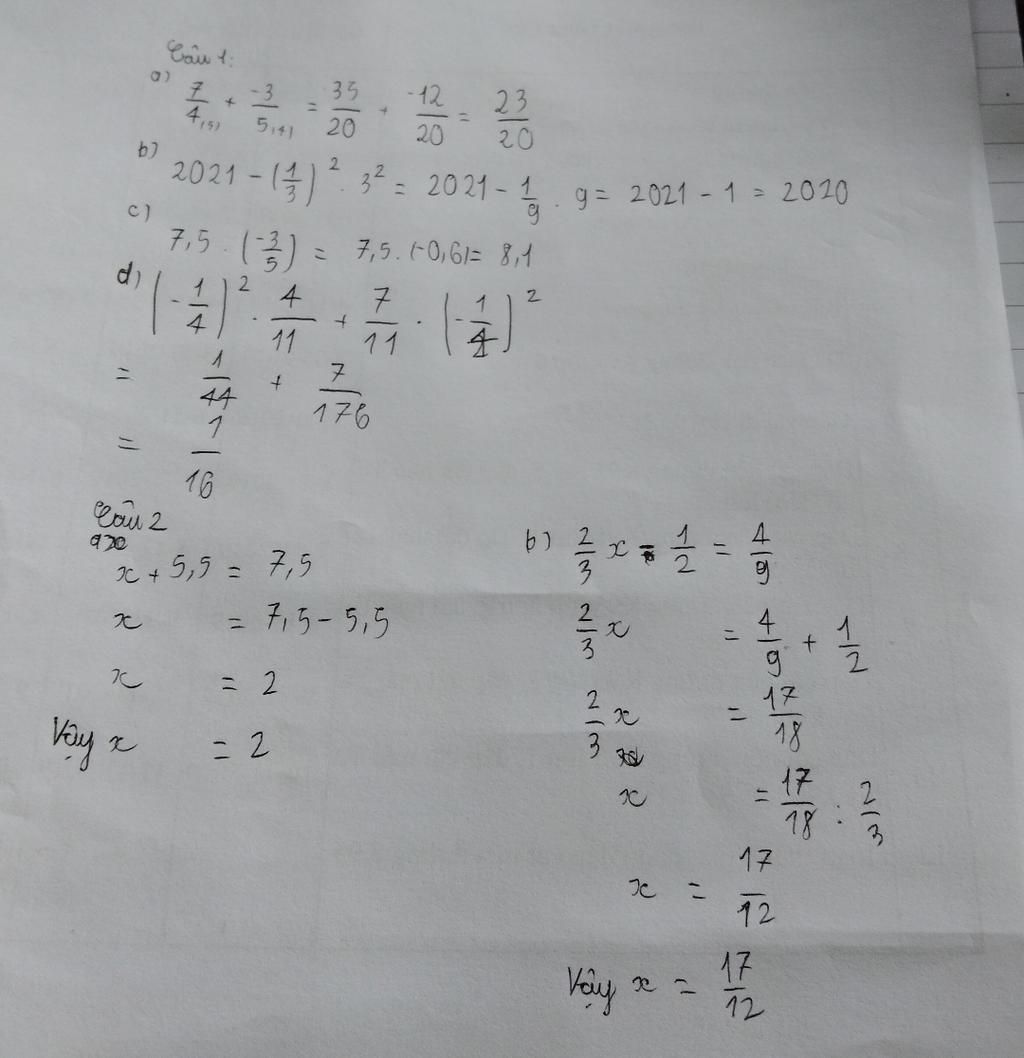 Câu 1:
a) 7/4(5) + -3/5(4) = 35/20 + -12/20 = 23/20
b) 2021 - (1/3)² . 3² = 2021 - 1/9 . 9 = 2021 - 1 = 2020
c) 7,5 . (-3/5) = 7,5 . (-0,6) = 8,1
d) (-1/4)² . 4/11 + 7/11 . (-1/4)²
= 1/44 + 7/176
= 1/16
Câu 2
a)
x + 5,5 = 7,5
x = 7,5 - 5,5
x = 2
Vậy x = 2
b) 2/3 x - 1/2 = 4/9
2/3 x = 4/9 + 1/2
2/3 x = 17/18
x = 17/18 : 2/3
x = 17/12
Vậy x = 17/12